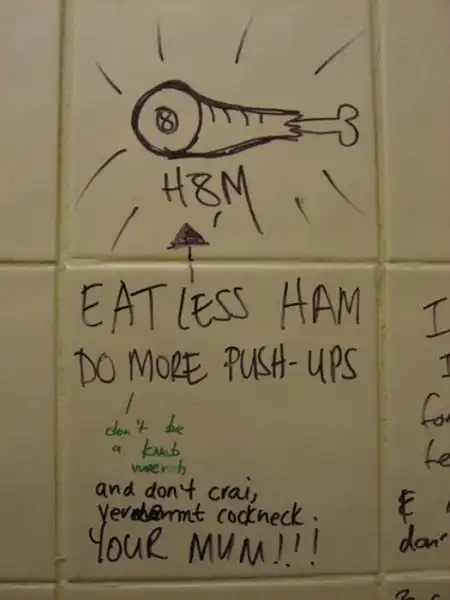 8
H8M
EAT LESS HAM
DO MORE PUSH-UPS
don't be
a knob
wench
and don't crai,
cockneck.
YOUR MUM!!!
I
I
for
te
&
don'